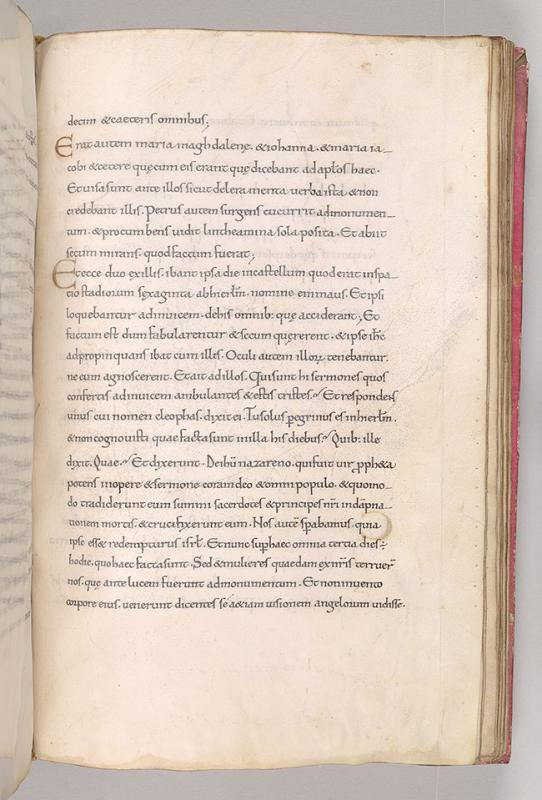 decim &caeteris omnibus;
Erat autem maria magdalene. &iohanna. &maria ia_
cobi &cetere quęcum eis erant quę dicebant adaplos haec.
Etuisasunt ante illos sicut deleramenta uerba ista &non
credebant illis. Petrus autem surgens cucurrit admonumen_
tum. &procumbens uidit linteamina sola posita. Et abiit
secum mirans. quodfactum fuerat;
Etecce duo exillis. ibant ipsa die incastellum quoderat inspa_
tio stadiorum sexaginta abhierlm. nomine emmaus. Et ipsi
loquebantur adinuicem. dehis omnib: quę acciderant; Et
factum est dum fabularentur &secum quererent. &ipse ihs
adpropinquans ibat cum illis. Oculi autem illorum tenebantur.
ne eum agnoscerent. Etait adillos. Quisunt hi sermones quos
confertis adinuicem ambulantes &estis tristes. Et respondens
unus cui nomen cleophas. dixit ei. Tusolus peregrinus es inhierlm.
&noncognouisti quae factasunt inilla his diebus. Quib: ille
dixit. Quae. Etdixerunt. Deihu nazareno. quifuit uir proph&a
potens inopere &sermone coram deo &omni populo. &quomo_
do tradiderunt eum summi sacerdotes &principes nri indamna_
tionem mortis. &crucifixerunt eum. Nos autē sperabamus. quia
ipse ess& redempturus isrl. Etnunc superhaec omnia tertia dies
hodie. quohaec factasunt. Sed &mulieres quaedam exnris terruer
nos. quę ante lucem fuerunt admonumentum. Et noninuento
corpore eius. uenerunt dicentes se &iam uisionem angelorum uidisse.